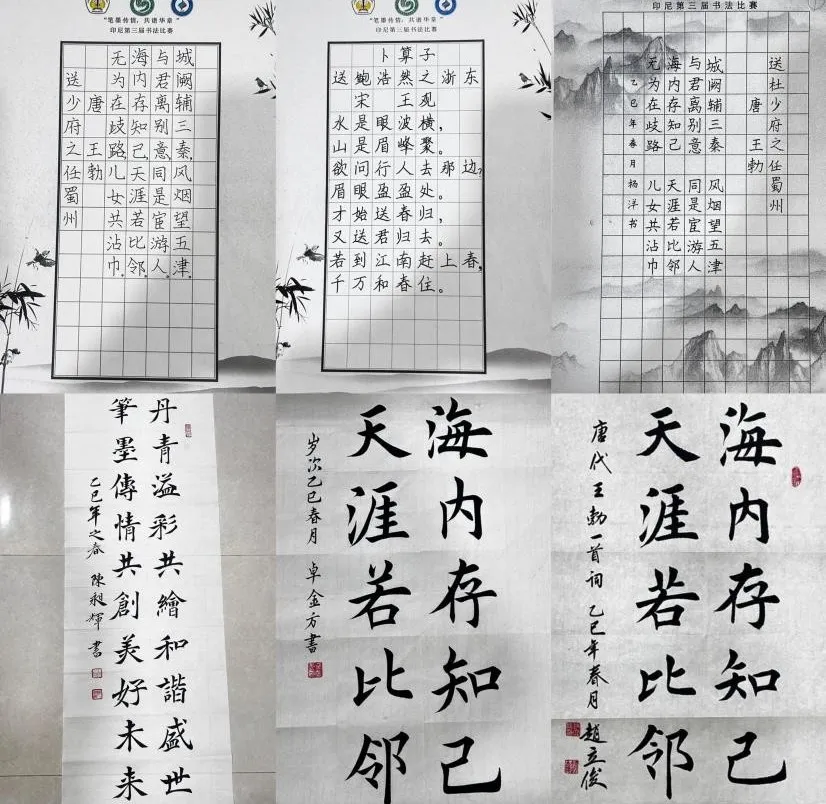 “笔墨传情，共谱华章”
印尼第三届书法比赛
城阙辅三秦,风烟望五津.
与君离别意,同是宦游人.
海内存知己,天涯若比邻.
无为在歧路,儿女共沾巾.
唐 王勃
送少府之任蜀州
“笔墨传情，共谱华章”
印尼第三届书法比赛
卜算子
送鲍浩然之浙东
宋 王观
水是眼波横,
山是眉峰聚。
欲问行人去那边?
眉眼盈盈处。
才始送春归,
又送君归去。
若到江南赶上春,
千万和春住。
印尼第三届书法比赛
送杜少府之任蜀州
唐 王勃
城阙辅三秦 风烟望五津
与君离别意 同是宦游人
海内存知己 天涯若比邻
无为在歧路 儿女共沾巾
乙巳年春月 杨洋书
丹青溢彩共繪和諧盛世
筆墨傳情共創美好未来
乙巳年之春 陳昶輝書
海内存知己
天涯若比邻
岁次乙巳春月 卓金方書
海内存知己
天涯若比邻
唐代王勃一首词 乙巳年春月 趙立俊